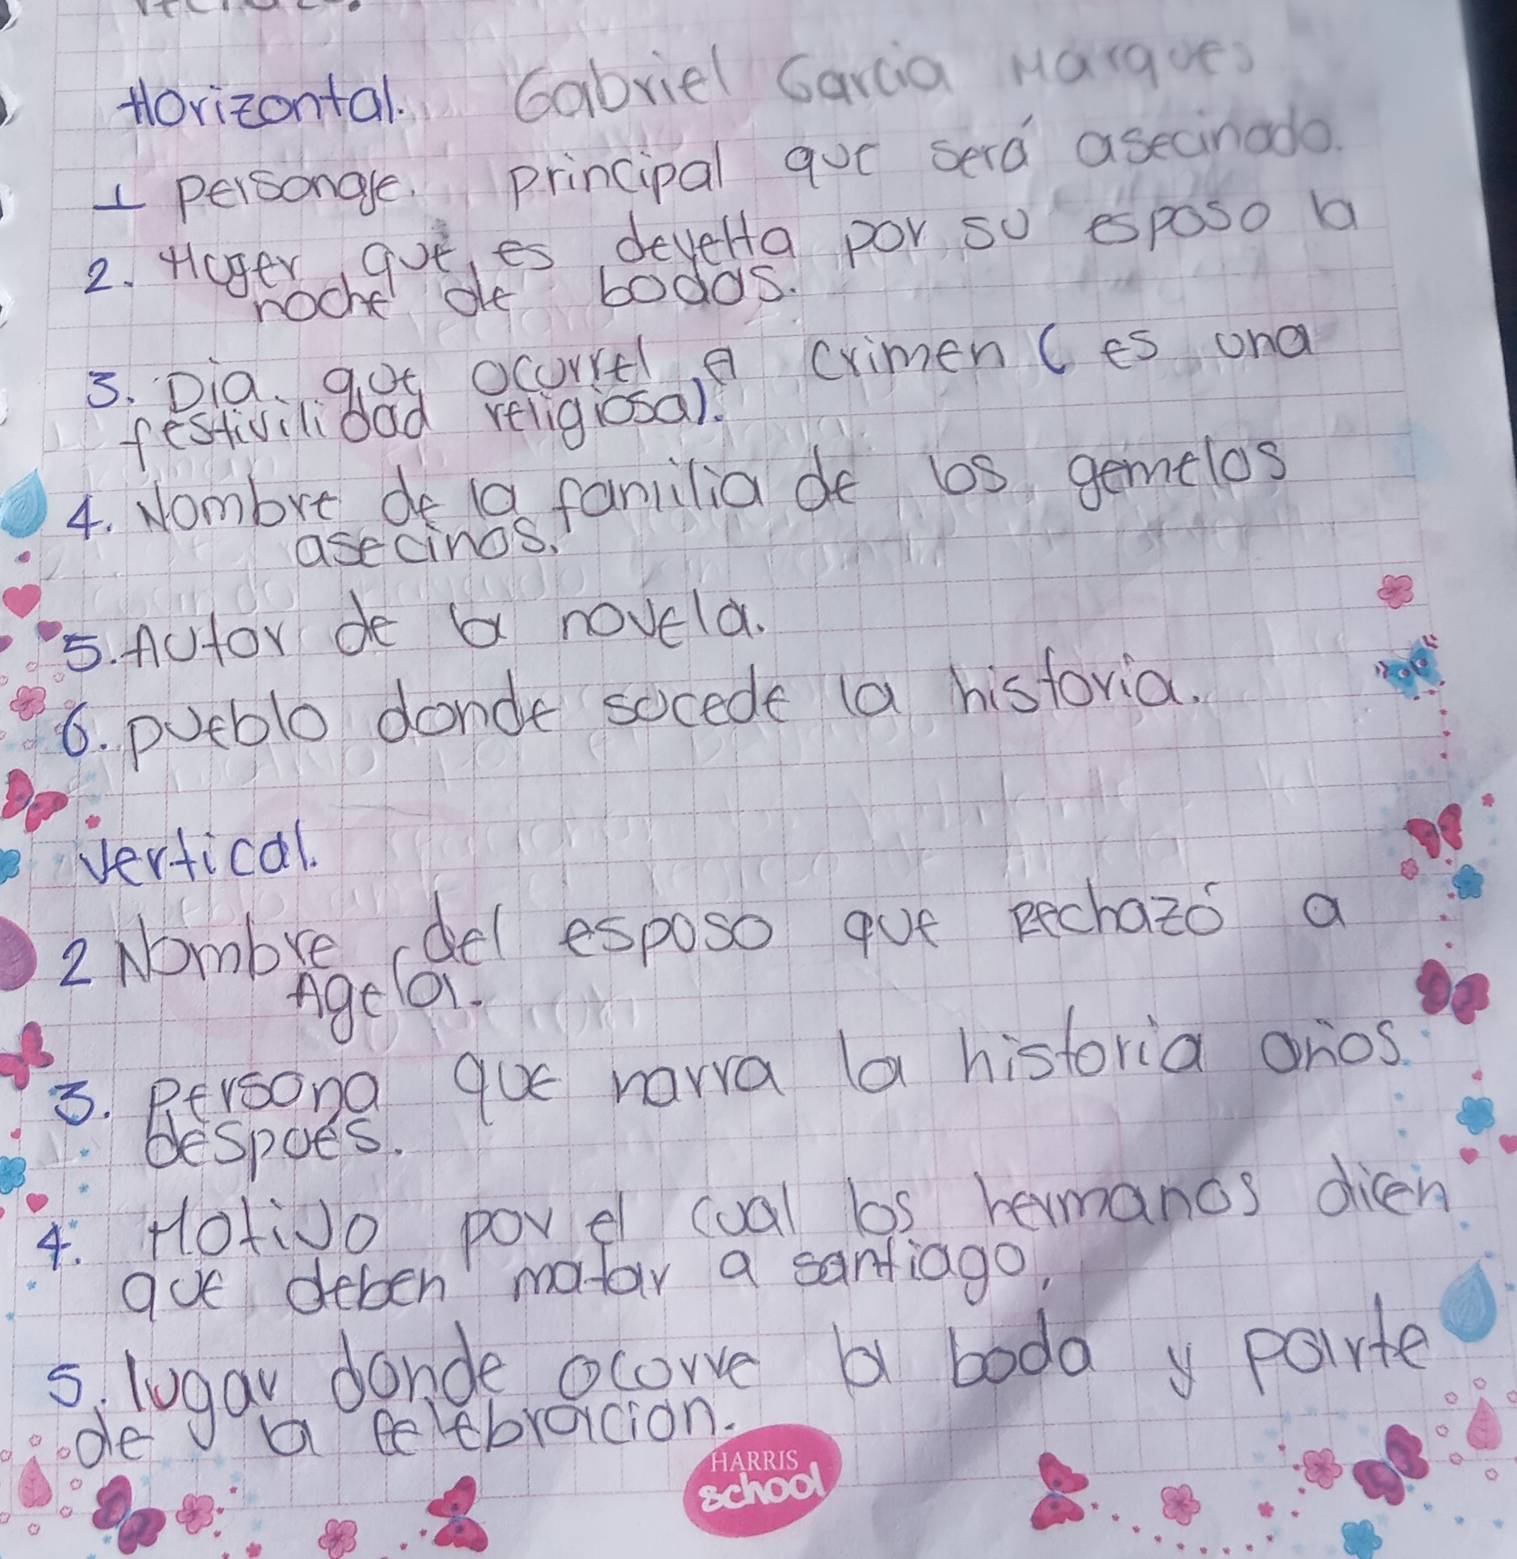 Horizontal. Gabriel Garcia Marques
1 personage. principal que será asecinado.
2. Muger que es develta por su esposo la
noche de bodas.
3. Dia. que ocurre el crimen (es una
festivilidad religiosa).
4. Nombre de la familia de los gemelos
asecinos.
5. Autor de la novela.
6. pueblo donde sucede la historia.
vertical.
2 Nombre del esposo que Rechazó a
Agela.
3. Persona que narra la historia años
despues.
4. Motivo por el cual los hermanos dicen
que deben matar a santiago.
5. lugar donde ocorre la boda y parte
de la celebracion.
HARRIS
school